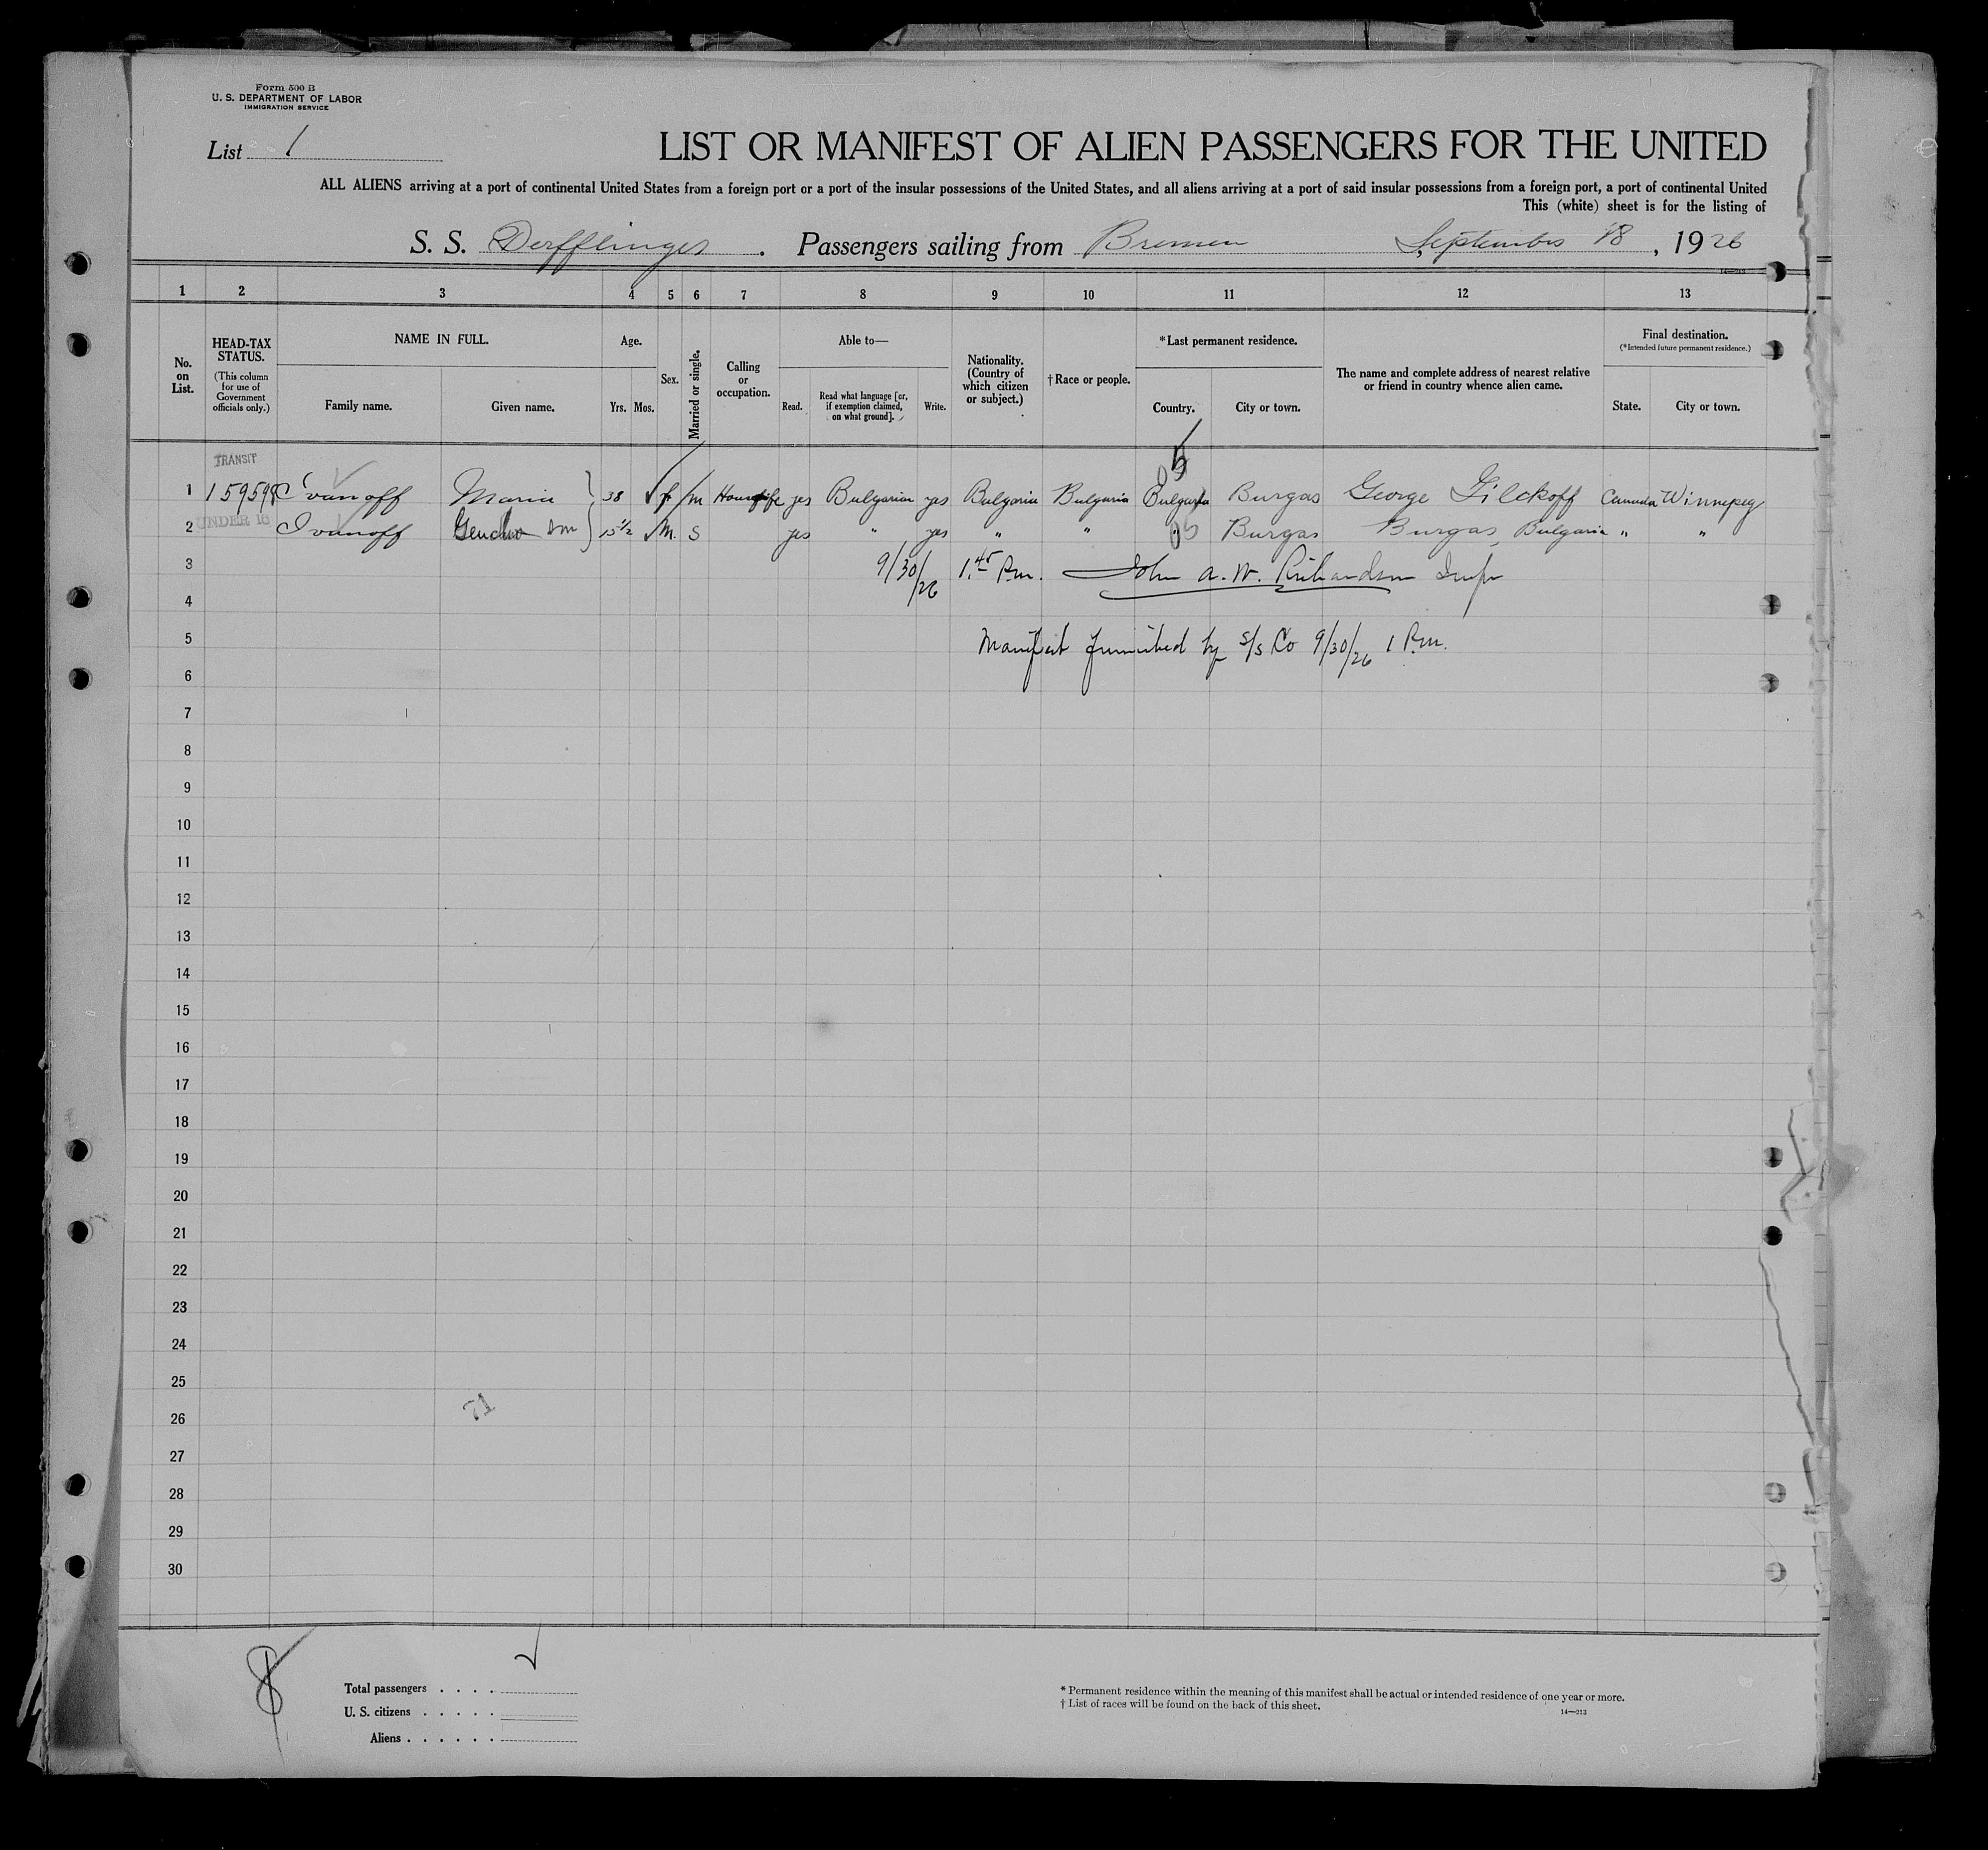 Form 500 B
U. S. DEPARTMENT OF LABOR
IMMIGRATION SERVICE
List 1
LIST OR MANIFEST OF ALIEN PASSENGERS FOR THE UNITED
ALL ALIENS arriving at a port of continental United States from a foreign port or a port of the insular possessions of the United States, and all aliens arriving at a port of said insular possessions from a foreign port, a port of continental United
This (white) sheet is for the listing of
S. S. Derfflinger . Passengers sailing from Bremen September 18, 1926
14—213
1 2 3 4 5 6 7 8 9 10 11 12 13
No. on List.
HEAD-TAX STATUS.
(This column for use of Government officials only.)
NAME IN FULL.
Family name. Given name.
Age.
Yrs. Mos.
Sex.
Married or single.
Calling or occupation.
Able to—
Read. Read what language [or, if exemption claimed, on what ground]. Write.
Nationality. (Country of which citizen or subject.)
† Race or people.
* Last permanent residence.
Country. City or town.
The name and complete address of nearest relative or friend in country whence alien came.
Final destination.
(* Intended future permanent residence.)
State. City or town.
TRANSIT
05
1 159598 Ivanoff Maria 38 f m Housewife yes Bulgarian yes Bulgaria Bulgaria Bulgaria Burgas George Canada Winnepeg
UNDER 16
2 Ivanoff Gencho son 15½ M. S yes " yes " " " Burgas Burgas, Bulgaria " "
05
3 9/30/26 1.45 P.m. John A. W. Richardson Insp
4
5 Manifest furnished by S/S Co 9/30/26 1 P.m.
6
7
8
9
10
11
12
13
14
15
16
17
18
19
20
21
22
23
24
25
26
27
28
29
30
71
Total passengers . . . .
U. S. citizens . . . . .
Aliens . . . . . .
* Permanent residence within the meaning of this manifest shall be actual or intended residence of one year or more.
† List of races will be found on the back of this sheet.
14—213